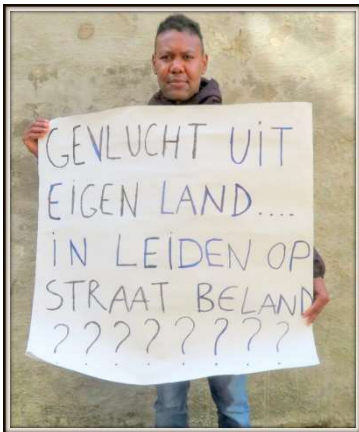 GEVLUCHT UIT
EIGEN LAND....
IN LEIDEN OP
STRAAT BELAND
????????